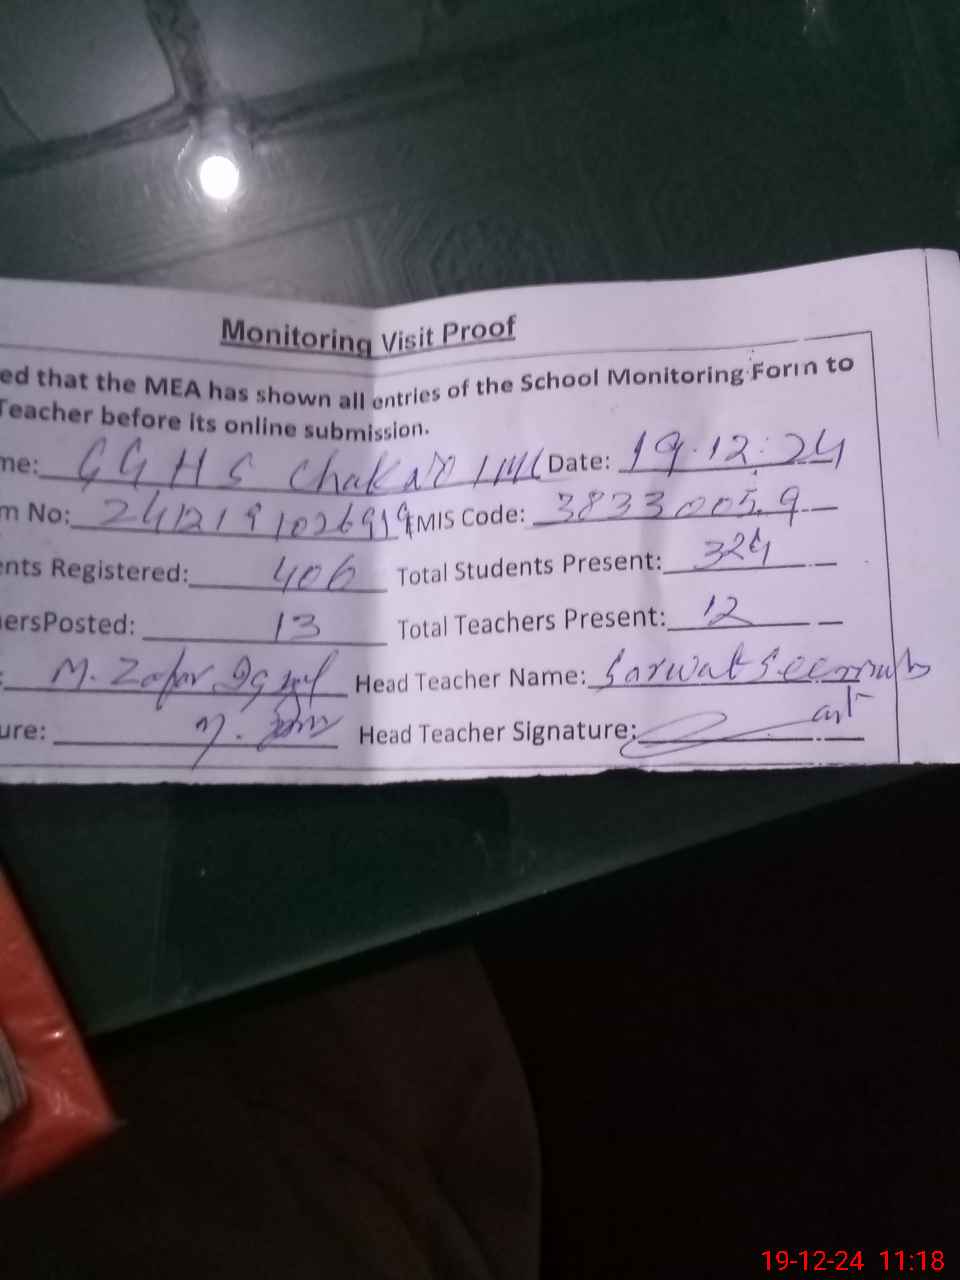 Monitoring Visit Proof
ed that the MEA has shown all entries of the School Monitoring Form to
Teacher before its online submission.
me: GGHS Chak Date: 19.12.24
m No: 2412191026919 EMIS Code: 38330059
ents Registered: 406 Total Students Present: 324
ersPosted: 13 Total Teachers Present: 12
M. Zafar Iqbal Head Teacher Name: Sarwat
ure: M. Head Teacher Signature:
19-12-24 11:18